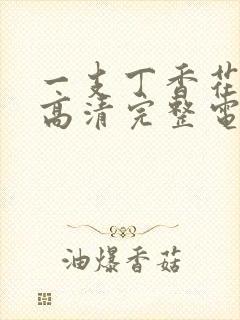 一支丁香花
高清完整电
油爆香菇